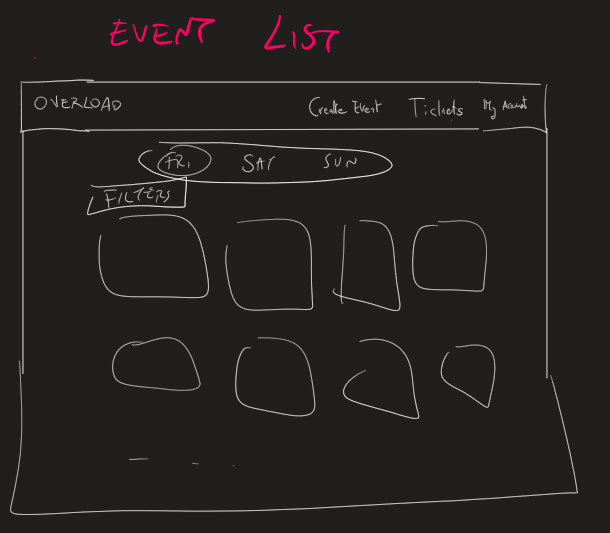 EVENT LIST
OVERLOAD Create Event Tickets My Account
FRI SAT SUN
FILTERS